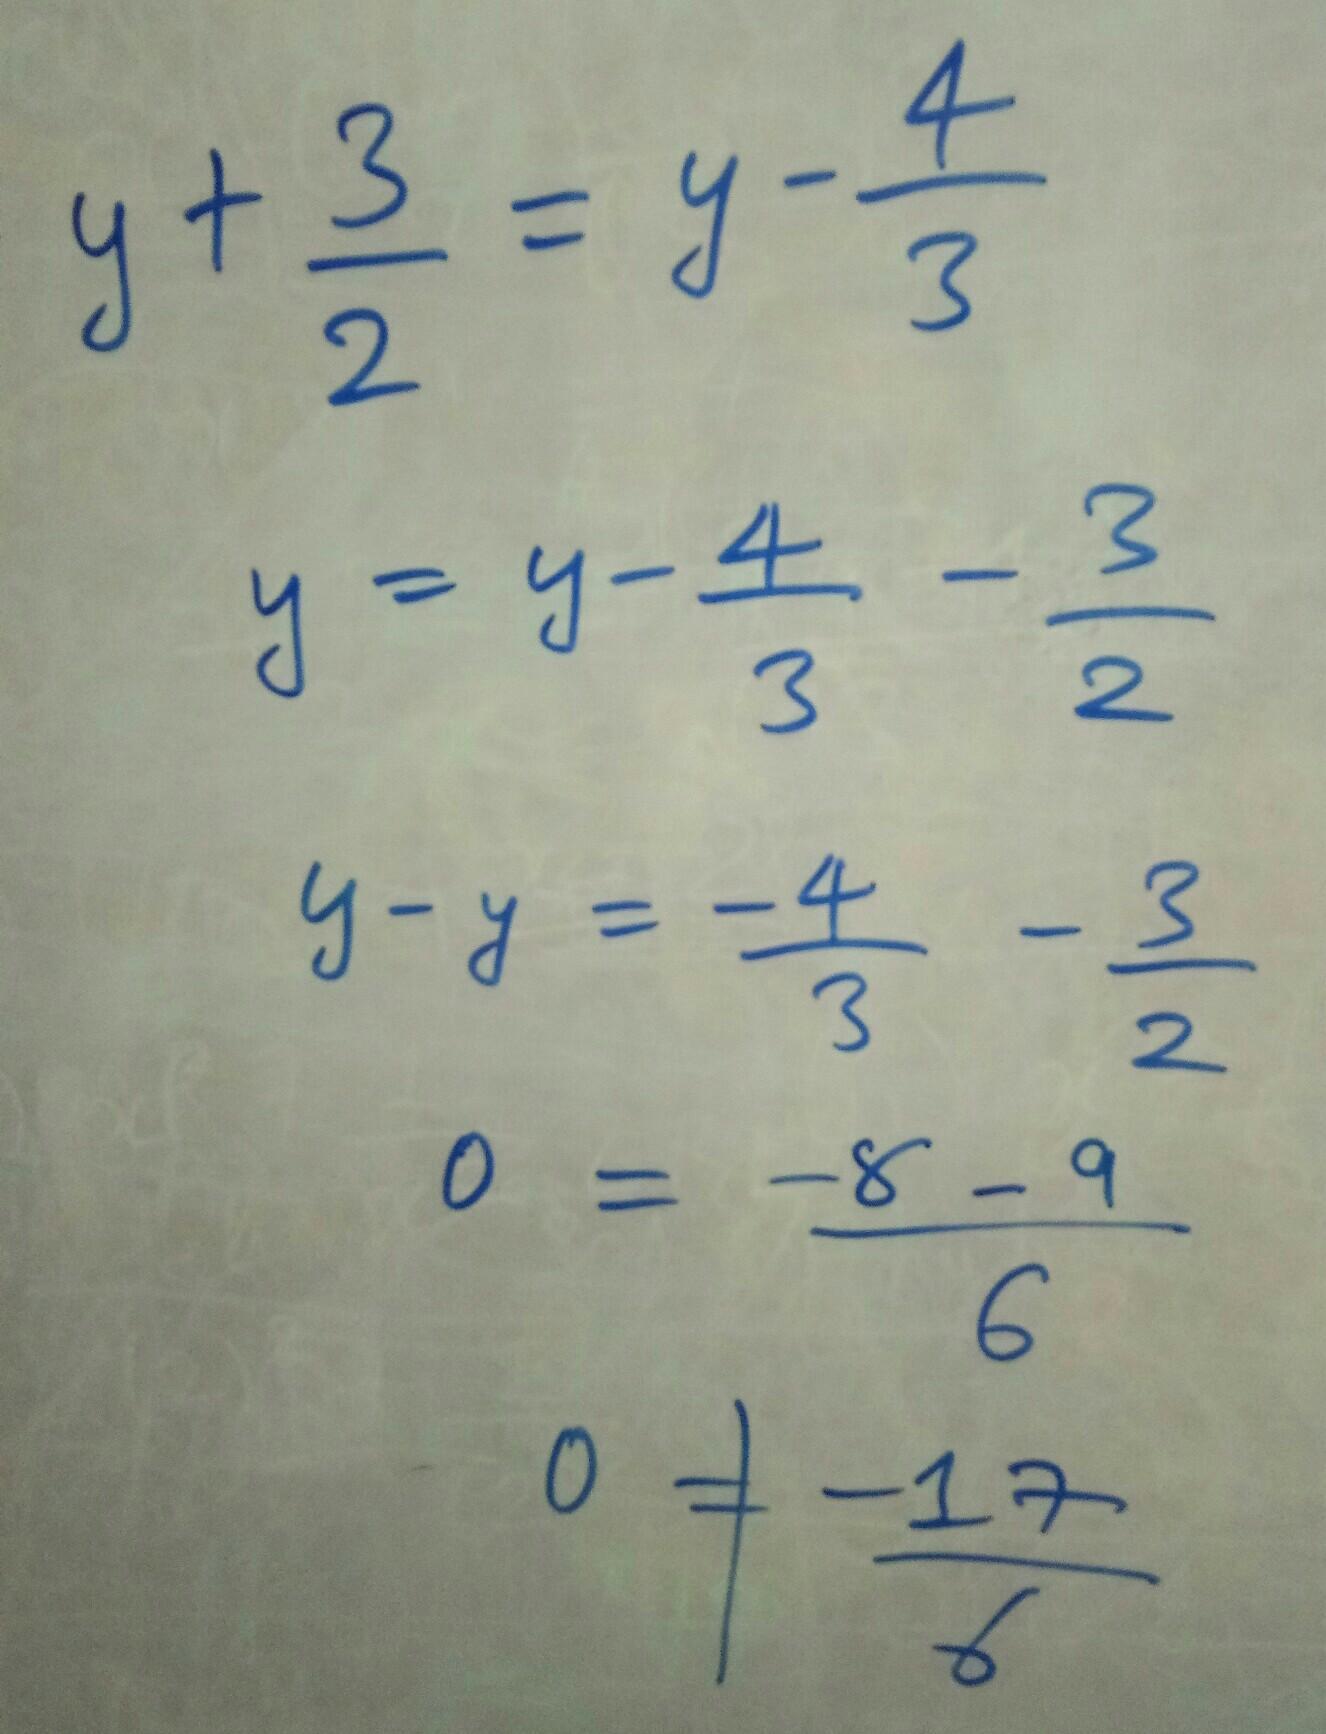 y + 3/2 = y - 4/3
y = y - 4/3 - 3/2
y - y = -4/3 - 3/2
0 = (-8 - 9)/6
0 ≠ -17/6